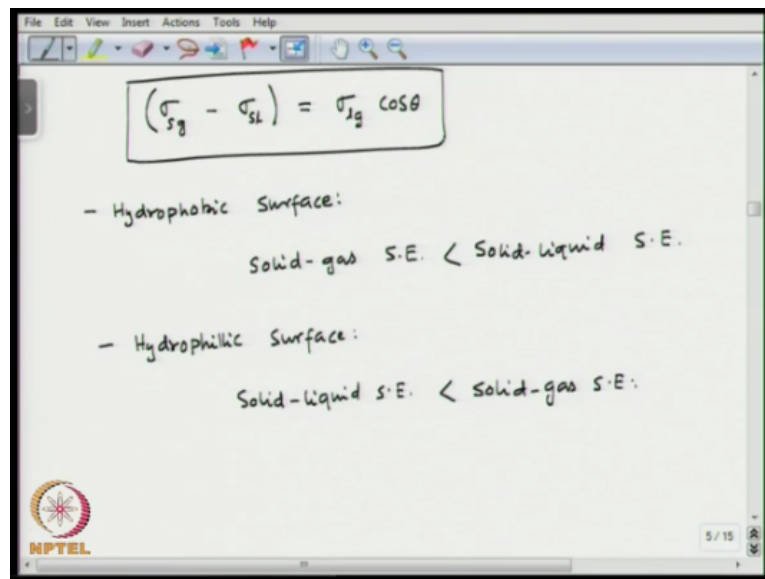 File Edit View Insert Actions Tools Help
(σsg - σsl) = σlg cosθ
- Hydrophobic Surface:
Solid-gas S.E. < Solid-liquid S.E.
- Hydrophillic Surface:
Solid-liquid S.E. < Solid-gas S.E.
5 / 15
NPTEL